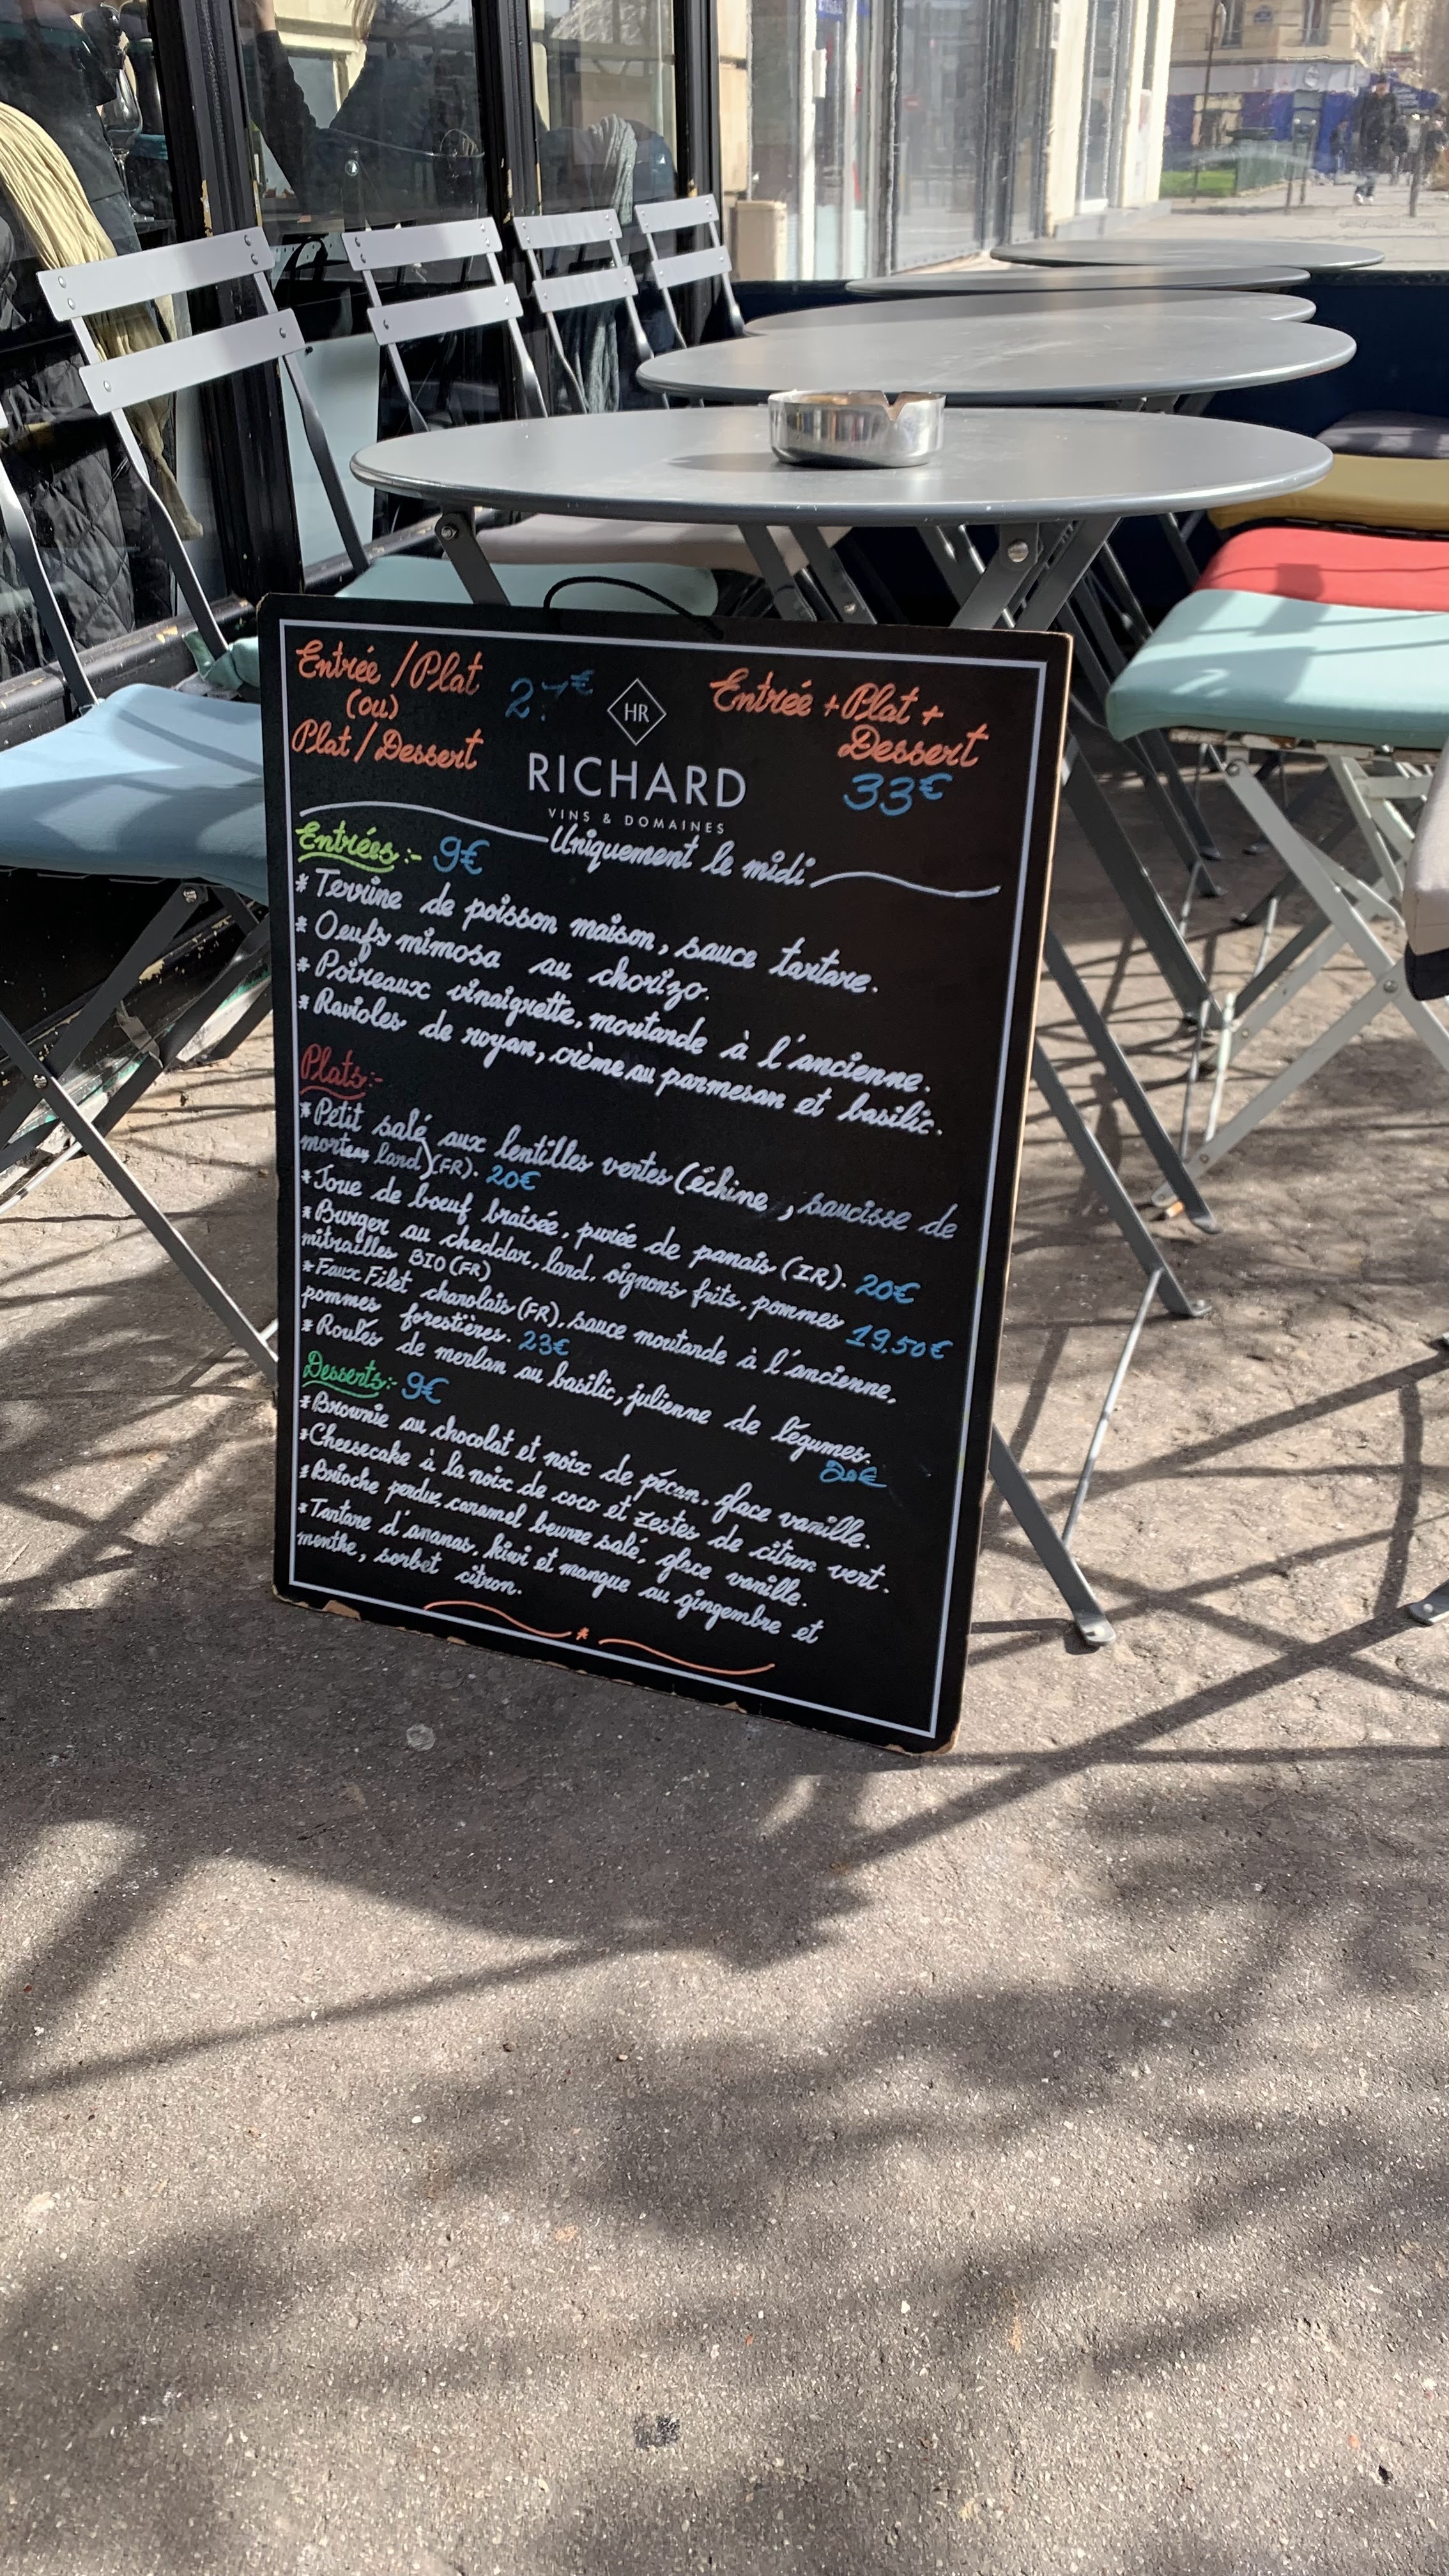 Entrée / Plat
(ou)
Plat / Dessert
27€
HR
RICHARD
VINS & DOMAINES
Entrée + Plat +
Dessert
33€
Uniquement le midi
Entrées:- 9€
* Terrine de poisson maison, sauce tartare.
* Oeufs mimosa au chorizo.
* Poireaux vinaigrette, moutarde à l'ancienne.
* Ravioles de royan, crème au parmesan et basilic.
Plats:-
* Petit salé aux lentilles vertes (échine, saucisse de
morteau lard) (FR). 20€
* Joue de boeuf braisée, purée de panais (IR). 20€
* Burger au cheddar, lard, oignons frits, pommes
mitrailles BIO (FR) 19,50€
* Faux Filet charolais (FR), sauce moutarde à l'ancienne,
pommes forestières. 23€
* Roulés de merlan au basilic, julienne de légumes.
20€
Desserts:- 9€
* Brownie au chocolat et noix de pécan, glace vanille.
* Cheesecake à la noix de coco et zestes de citron vert.
* Brioche perdue, caramel beurre salé, glace vanille.
* Tartare d'ananas, kiwi et mangue au gingembre et
menthe, sorbet citron.